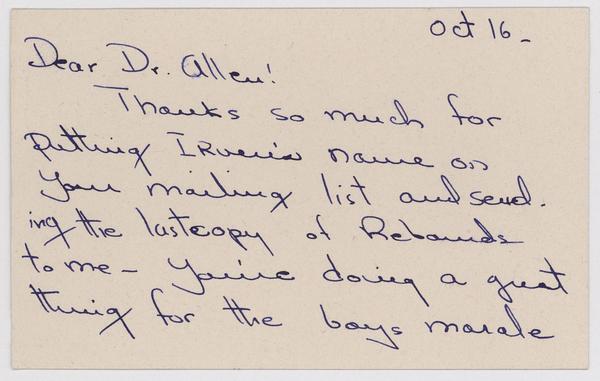 Oct 16 -
Dear Dr. Allen!
Thanks so much for
putting Irvin's name on
your mailing list and send-
ing the last copy of Rebounds
to me - You're doing a great
thing for the boys morale